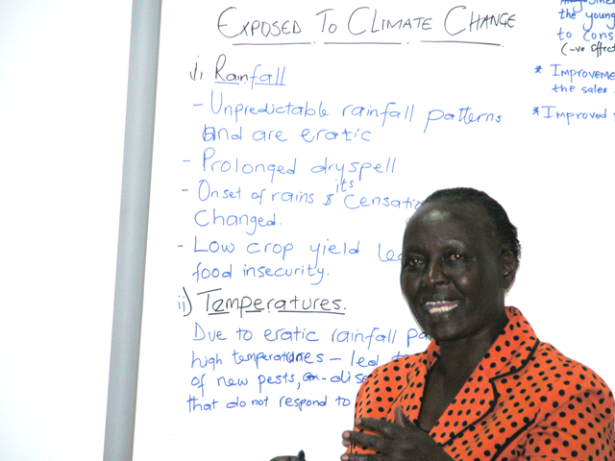 EXPOSED TO CLIMATE CHANGE
i) Rainfall
- Unpredictable rainfall patterns
and are eratic
- Prolonged dryspell
- Onset of rains & its
Changed.
- Low crop yield
food insecurity.
ii) Temperatures.
Due to eratic rainfall
high temperatures – led
of new pests,
that do not respond to
the young
to cons
(-ve effect
* Improveme
the sales
* Improved